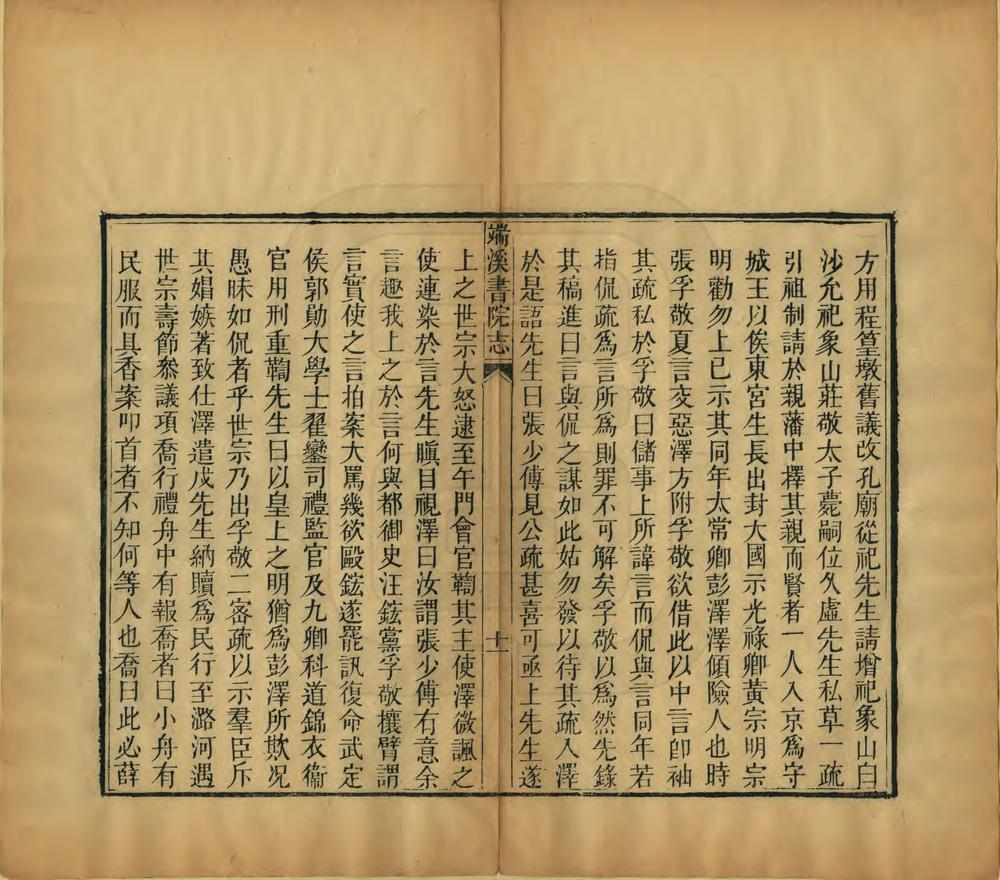 方用程篁墩舊議改孔廟從祀先生請增祀象山白
沙允祀象山莊敬太子薨嗣位久虛先生私草一疏
引祖制請於親藩中擇其親而賢者一人入京爲守
城王以俟東宮生長出封大國示光祿卿黃宗明宗
明勸勿上已示其同年太常卿彭澤澤傾險人也時
張孚敬夏言交惡澤方附孚敬欲借此以中言卽袖
其疏私於孚敬曰儲事上所諱言而侃與言同年若
指侃疏爲言所爲則罪不可解矣孚敬以爲然先錄
其稿進曰言與侃之謀如此姑勿發以待其疏入澤
於是語先生曰張少傅見公疏甚喜可亟上先生遂
端溪書院志
十一
上之世宗大怒逮至午門會官鞫其主使澤微諷之
使連染於言先生瞋目視澤曰汝謂張少傅有意余
言趣我上之於言何與都御史汪鋐黨孚敬攘臂謂
言實使之言拍案大罵幾欲毆鋐遂罷訊復命武定
侯郭勛大學士翟鑾司禮監官及九卿科道錦衣衞
官用刑重鞫先生曰以皇上之明猶爲彭澤所欺况
愚昧如侃者乎世宗乃出孚敬二密疏以示羣臣斥
其娼嫉著致仕澤遣戍先生納贖爲民行至潞河遇
世宗壽節叅議項喬行禮舟中有報喬者曰小舟有
民服而具香案叩首者不知何等人也喬曰此必薛